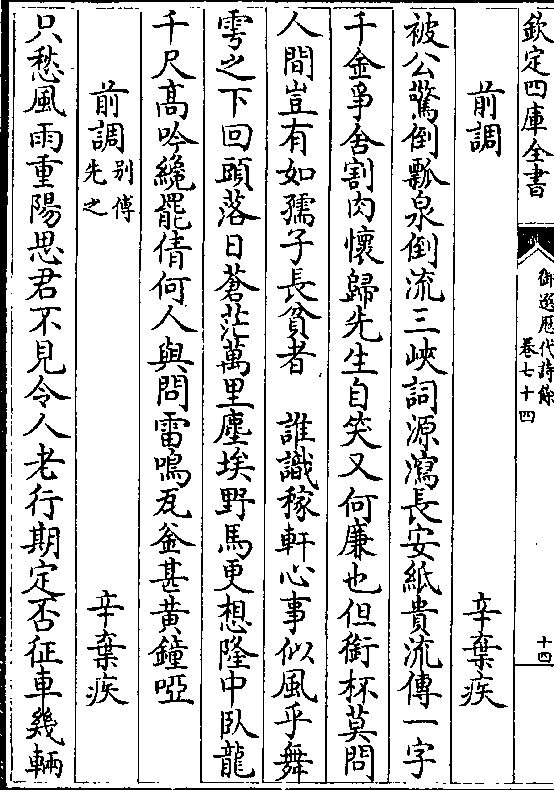 欽定四庫全書
御選歷代詩餘
卷七十四
十四
前調 辛棄疾
被公驚倒瓢泉倒流三峽詞源瀉長安紙貴流傳一字
千金爭舍割肉懷歸先生自笑又何廉也但銜杯莫問
人間豈有如孺子長貧者 誰識稼軒心事似風乎舞
雩之下回頭落日蒼茫萬里塵埃野馬更想隆中臥龍
千尺高吟纔罷倩何人與問雷鳴瓦釜甚黃鐘啞
前調别傅先之 辛棄疾
只愁風雨重陽思君不見令人老行期定否征車幾輛